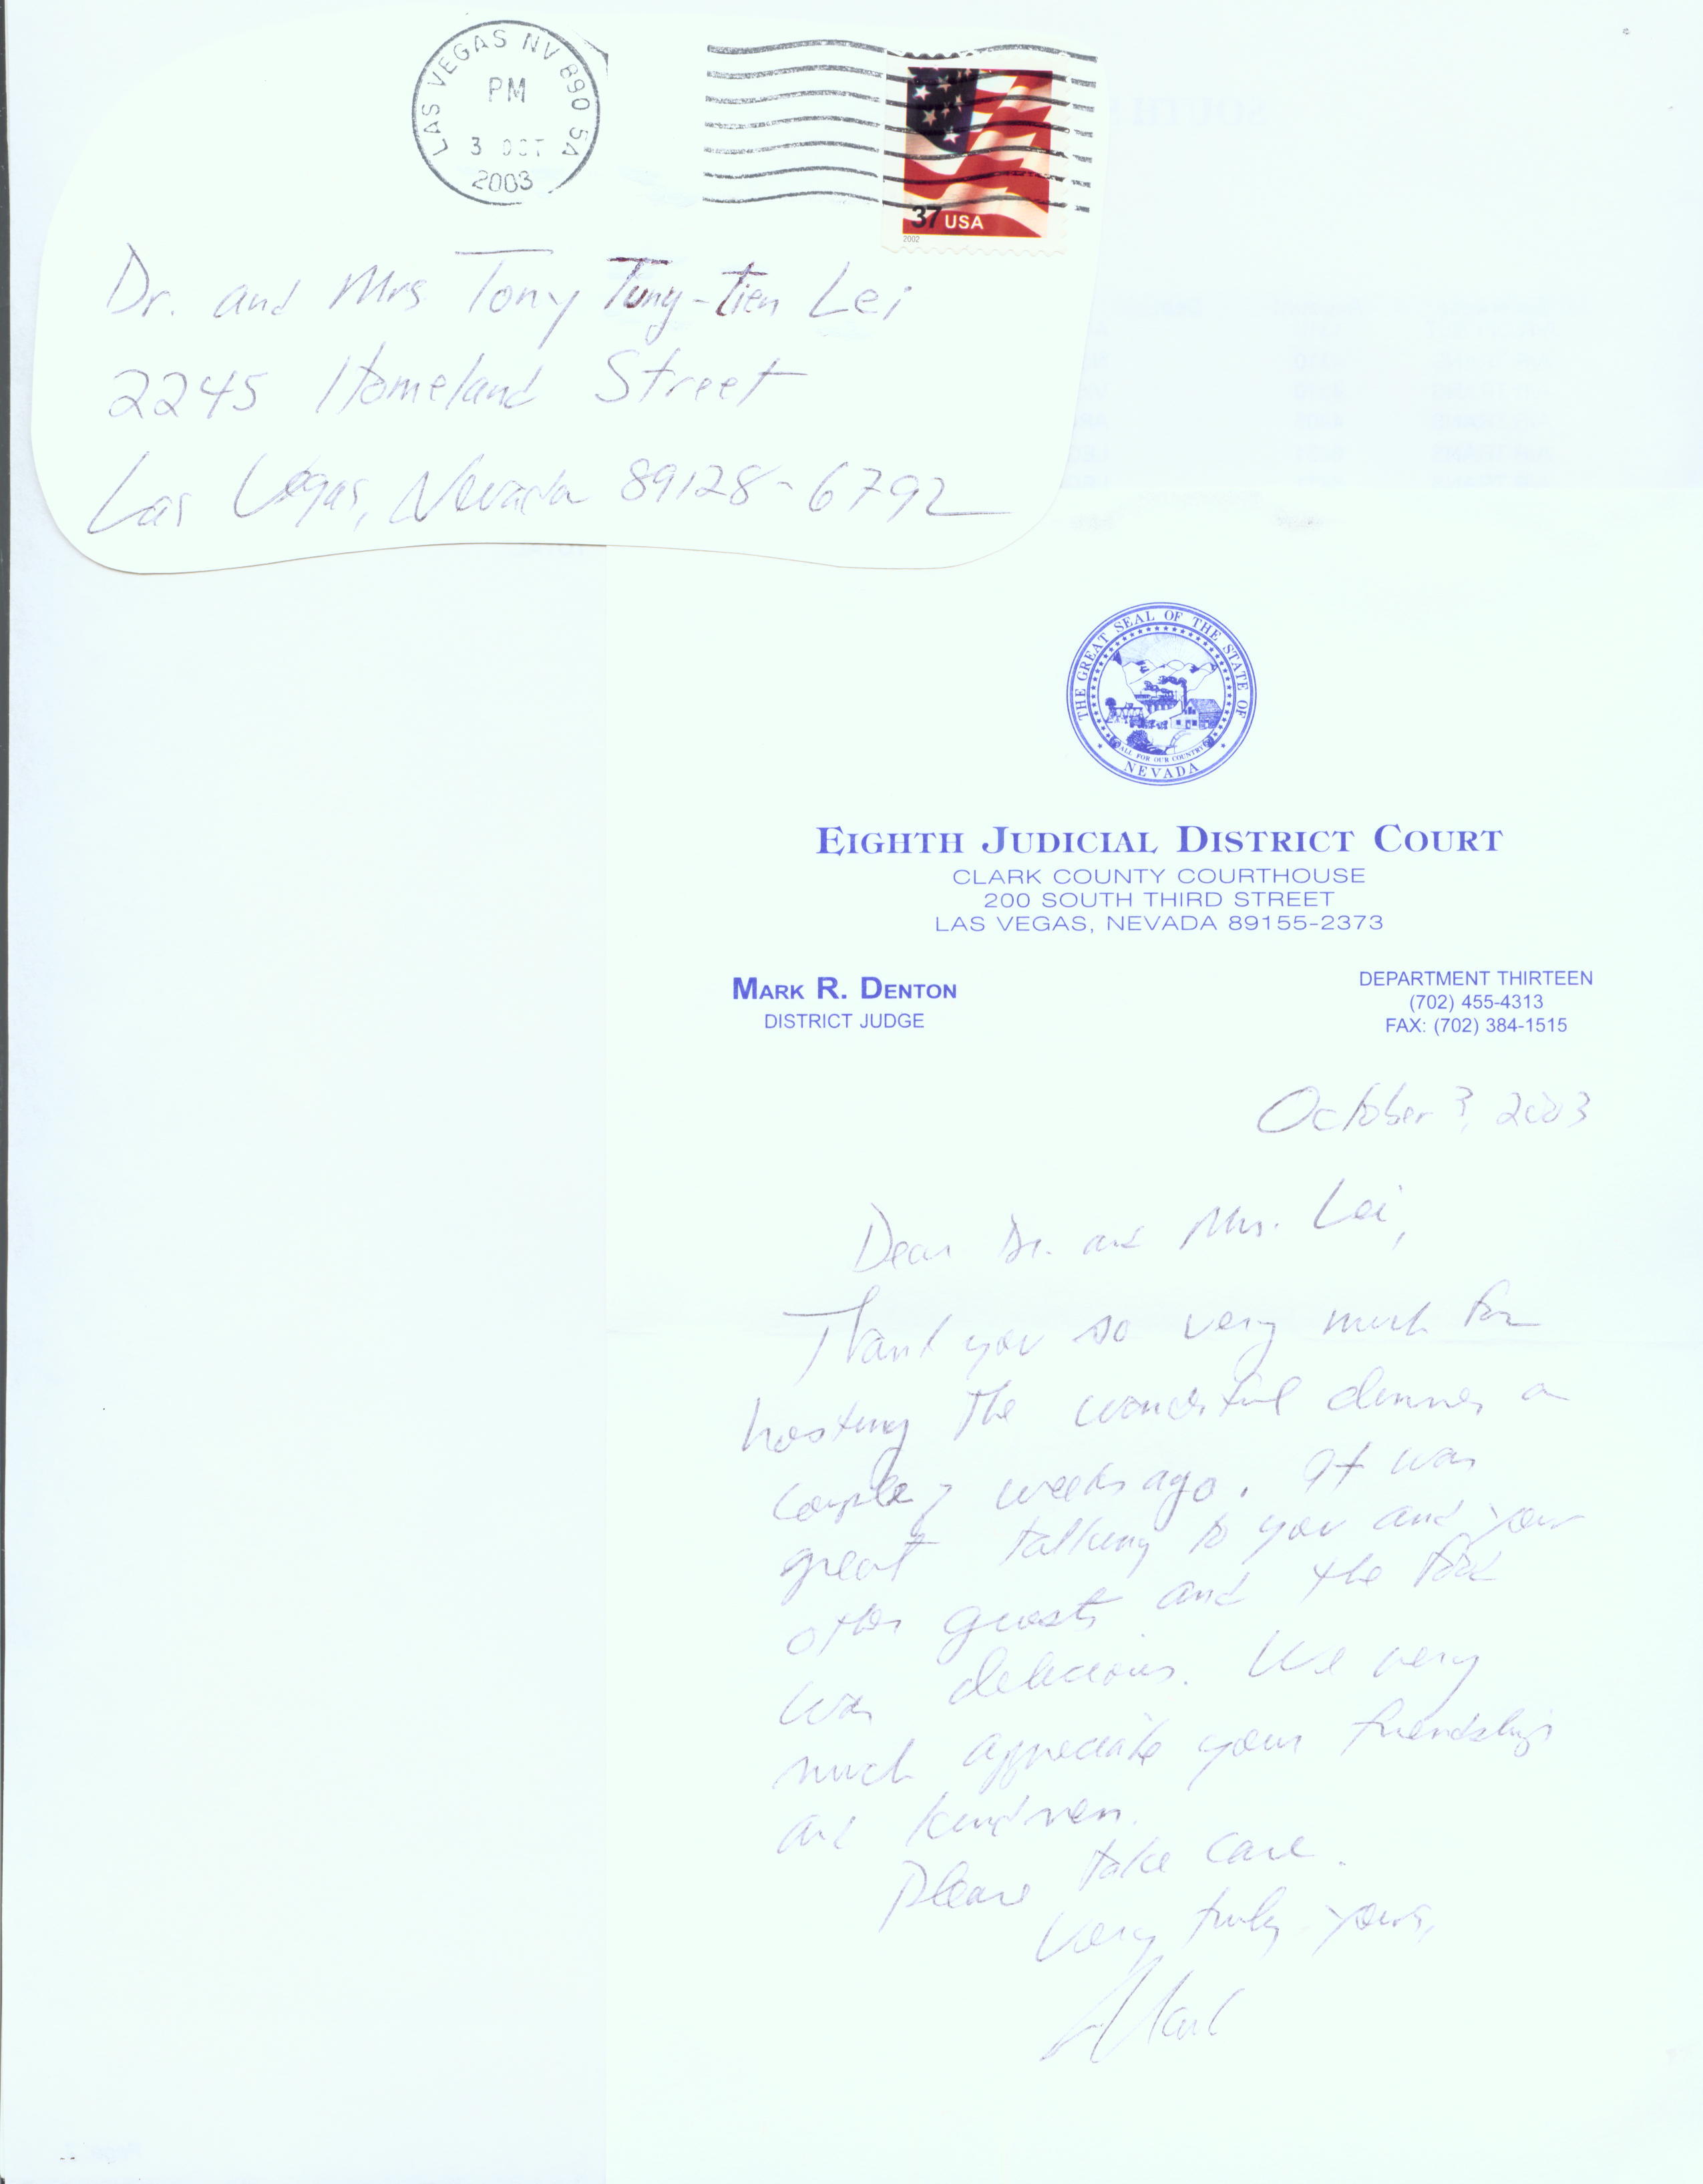 LAS VEGAS NV 890 5A
PM
3 OCT
2003
37 USA
2002
Dr. and Mrs Tony Tung-tien Lei
2245 Homeland Street
Las Vegas, Nevada 89128-6792
THE GREAT SEAL OF THE STATE OF
ALL FOR OUR COUNTRY
NEVADA
EIGHTH JUDICIAL DISTRICT COURT
CLARK COUNTY COURTHOUSE
200 SOUTH THIRD STREET
LAS VEGAS, NEVADA 89155-2373
MARK R. DENTON
DISTRICT JUDGE
DEPARTMENT THIRTEEN
(702) 455-4313
FAX: (702) 384-1515
October 3, 2003
Dear Dr. and Mrs. Lei,
Thank you so very much for
hosting the wonderful dinner a
couple of weeks ago. It was
great talking to you and your
other guests and the food
was delicious. We very
much appreciate your friendship
and kindness.
Please take care.
Very truly yours,
Mark